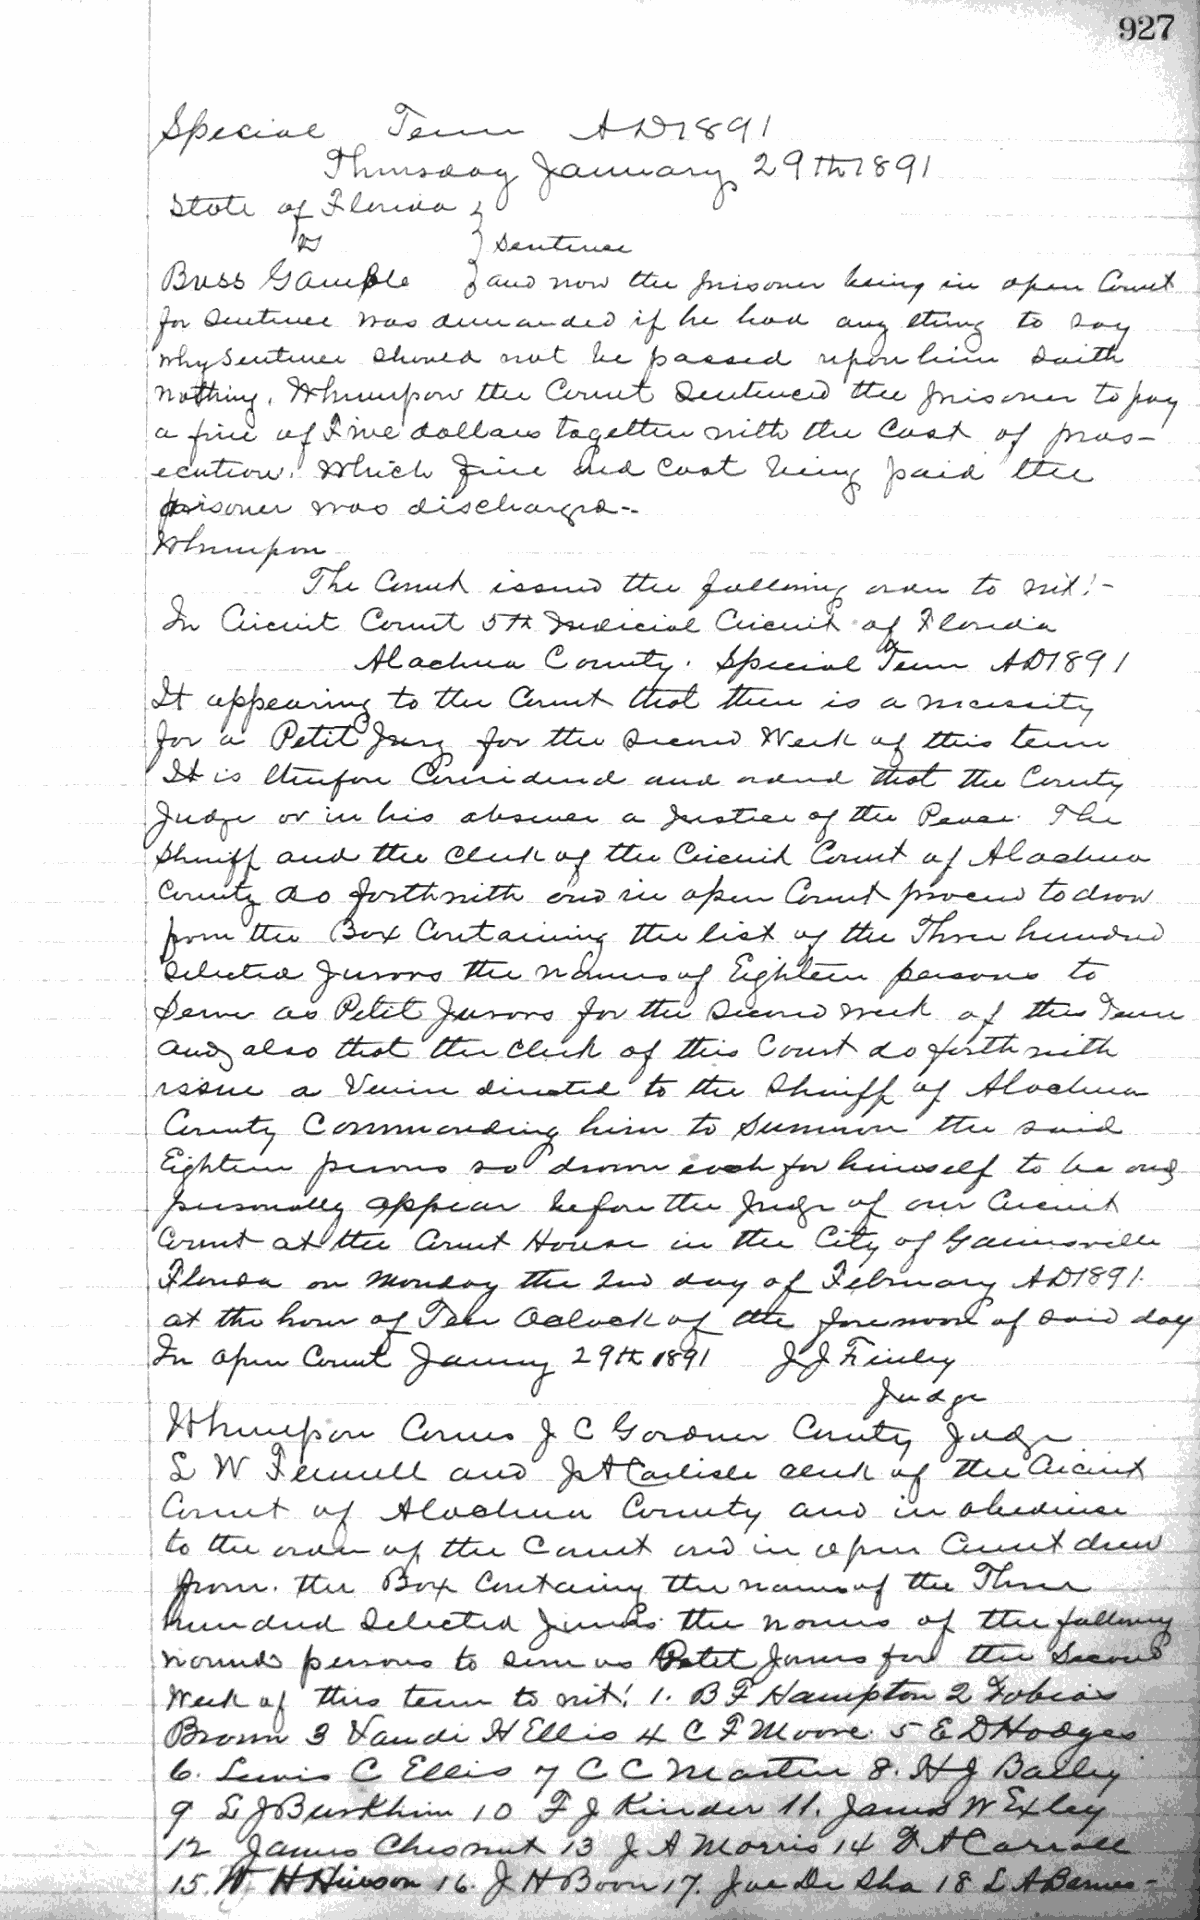 927
Special Term AD1891
Thursday January 29th 1891
State of Florida }
vs } Sentence
Buss Gamble } and now the prisoner being in open Court
for Sentence was demanded if he had any thing to say
why Sentence should not be passed upon him Saith
nothing. Whereupon the Court Sentenced the prisoner to pay
a fine of Five dollars together with the Cost of pros-
ecution. Which fine and Cost being paid the
prisoner was discharged--
Whereupon
The Court issued the following order to wit:-
In Circuit Court 5th Judicial Circuit of Florida
Alachua County. Special Term AD1891
It appearing to the Court that there is a necessity
for a Petit Jury for the Second Week of this term
It is therefore Considered and ordered that the County
Judge or in his absence a Justice of the Peace. The
Sheriff and the Clerk of the Circuit Court of Alachua
County do forthwith and in open Court proceed to draw
from the Box Containing the list of the Three hundred
Selected Jurors the names of Eighteen persons to
Serve as Petit Jurors for the Second week of this Term
and also that the Clerk of this Court do forthwith
issue a Venire directed to the Sheriff of Alachua
County Commanding him to Summon the said
Eighteen persons so drawn each for himself to be and
personally appear before the Judge of our Circuit
Court at the Court House in the City of Gainesville
Florida on Monday the 2nd day of February AD1891.
at the hour of Ten Oclock of the forenoon of said day
In open Court January 29th 1891 J J Finley
Judge
Whereupon Comes J C Gardner County Judge
L W Fennell and J A Carlisle clerk of the Circuit
Court of Alachua County and in obedience
to the order of the Court and in open Court drew
from. the Box Containing the names of the Three
hundred Selected Jurors the names of the following
named persons to serve as Petit Jurors for the Second
Week of this term to wit: 1. B F Hampton 2 Tobias
Brown 3 Vandi H Ellis 4 C F Moore. 5 E D Hodges
6. Lewis C Ellis 7 C C Martin 8. H J Bailey
9 L J Burkhim 10 F J Kinder 11. James W Exley
12 James Chesnut 13 J A Morris 14 D A Carroll
15. W H Hinson 16. J H Boon 17. Joe De Sha 18 L A Barnes-